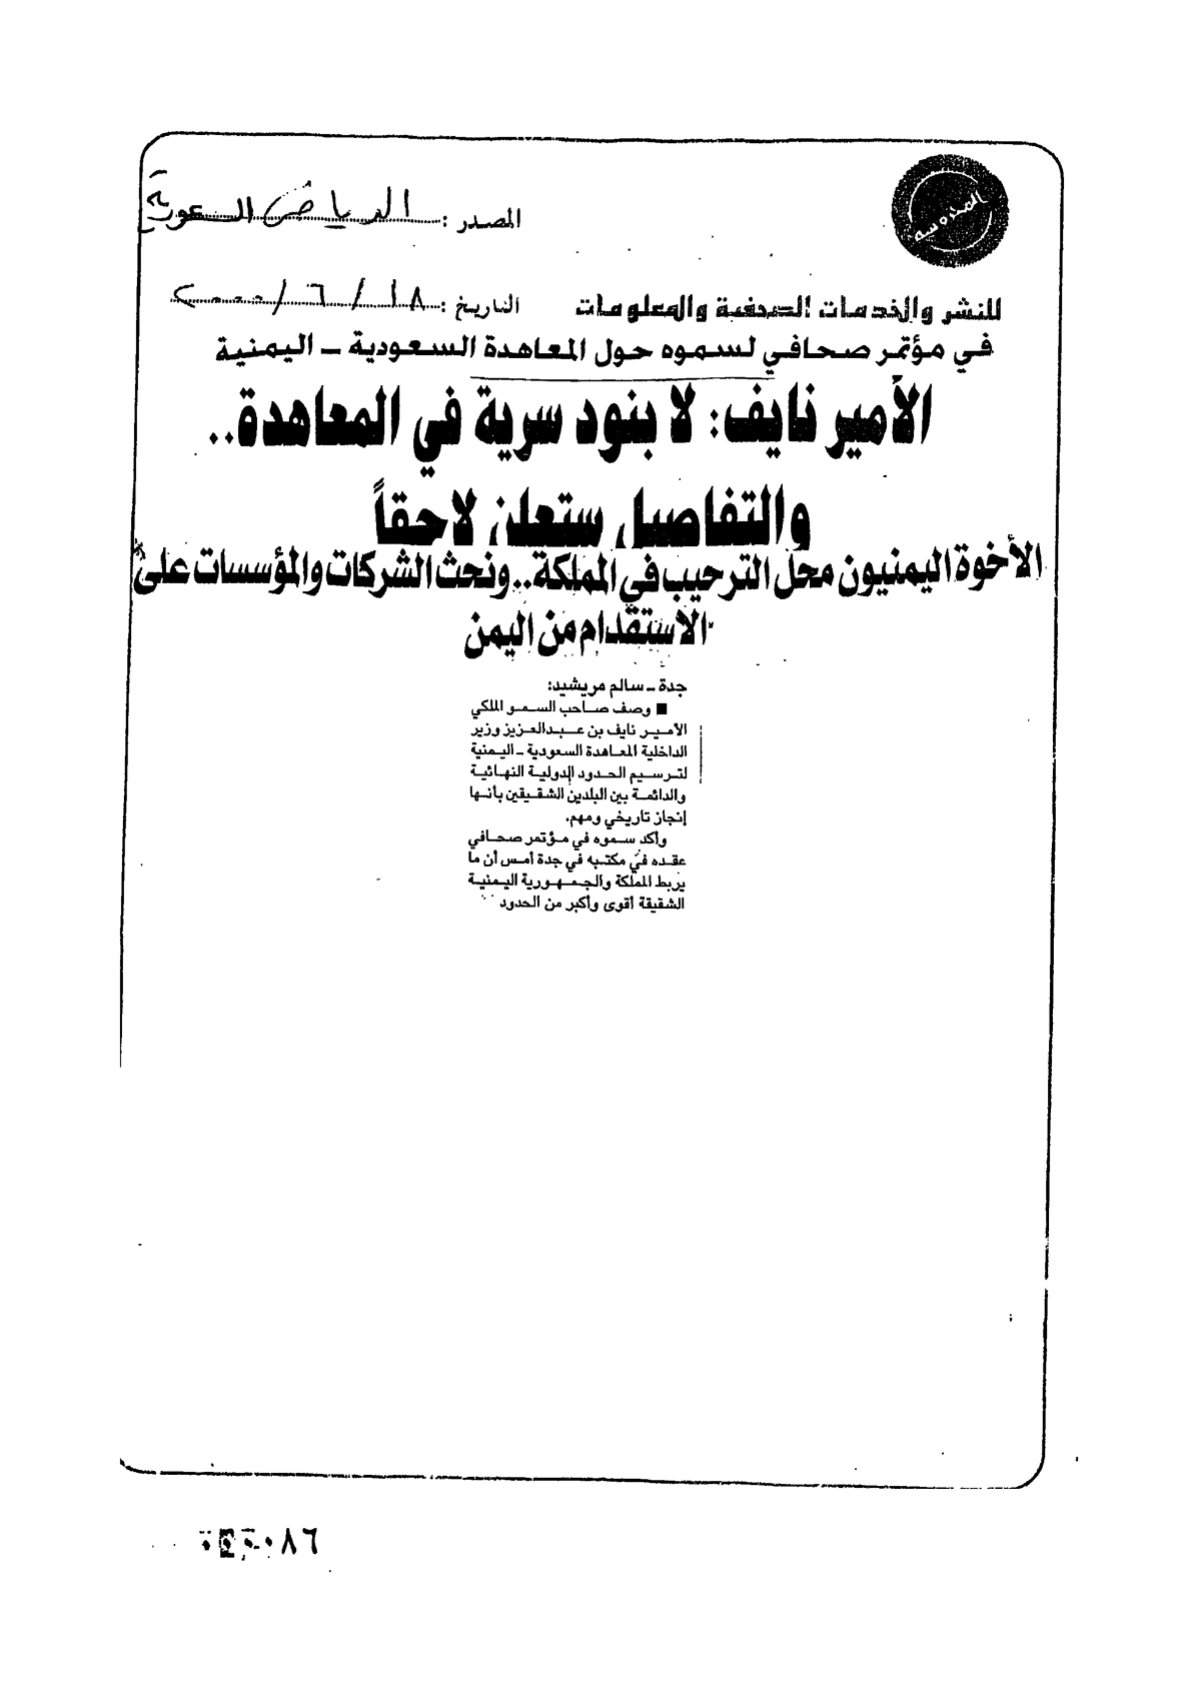 المصدر : الرياض السعودية
للنشر والخدمات الصحفية والمعلومات
التاريخ : ١٨ / ٦ / ٢٠٠٠
في مؤتمر صحافي لسموه حول المعاهدة السعودية ـ اليمنية
الأمير نايف: لا بنود سرية في المعاهدة..
والتفاصيل ستعلن لاحقاً
الأخوة اليمنيون محل الترحيب في المملكة.. ونحث الشركات والمؤسسات على
الاستقدام من اليمن
جدة ـ سالم مريشيد:
■ وصف صاحب السمو الملكي
الأمير نايف بن عبدالعزيز وزير
الداخلية المعاهدة السعودية ـ اليمنية
لترسيم الحدود الدولية النهائية
والدائمة بين البلدين الشقيقين بأنها
إنجاز تاريخي ومهم.
وأكد سموه في مؤتمر صحافي
عقده في مكتبه في جدة أمس أن ما
يربط المملكة والجمهورية اليمنية
الشقيقة أقوى وأكبر من الحدود